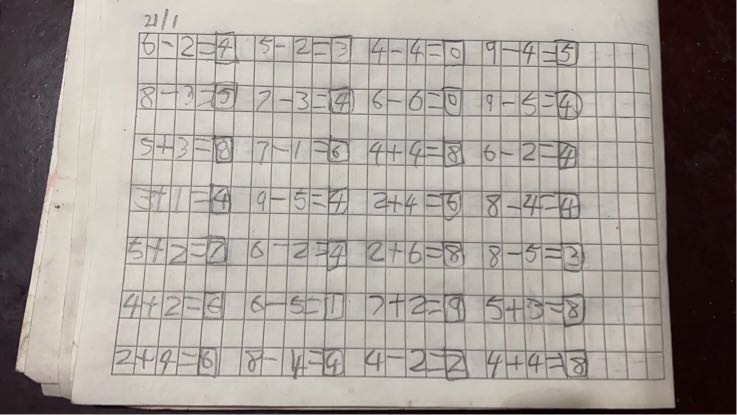 21/1
6-2=4 5-2=3 4-4=0 9-4=5
8-3=5 7-3=4 6-6=0 9-5=4
5+3=8 7-1=6 4+4=8 6-2=4
3+1=4 9-5=4 2+4=6 8-4=4
5+2=7 6-2=4 2+6=8 8-5=3
4+2=6 6-5=1 7+2=9 5+3=8
2+4=6 8-4=4 4-2=2 4+4=8